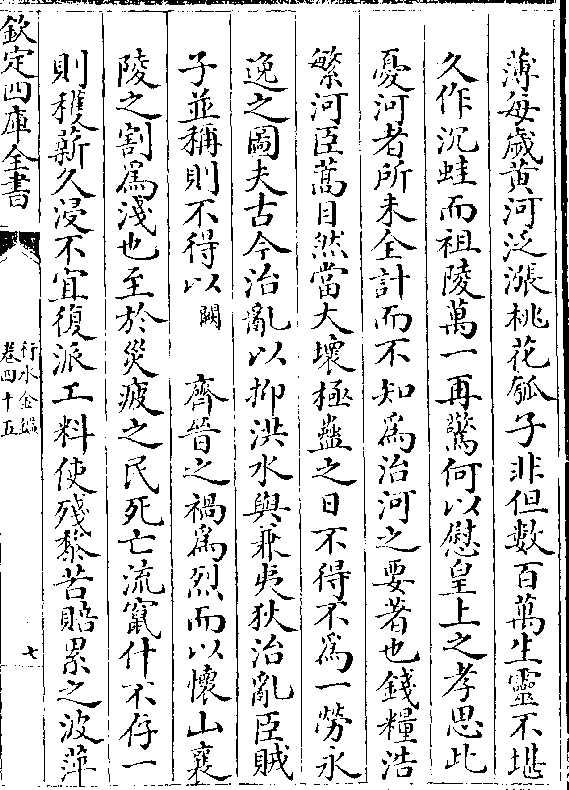 薄每歳黄河泛漲桃花瓠子非但數百萬生靈不堪
久作沉蛙而祖陵萬一再驚何以慰皇上之孝思此
憂河者所未全計而不知為治河之要著也錢糧浩
繁河臣蒿目然當大壞極蠱之日不得不為一勞永
逸之圖夫古今治亂以抑洪水與兼夷狄治亂臣賊
子並稱則不得以闕 齊晉之禍為烈而以懷山襄
陵之割為淺也至於災疲之民死亡流竄什不存一
則穫薪久浸不宜復派工料使殘黎苦賠累之波萍
欽定四庫全書
行水金鑑
卷四十五
七